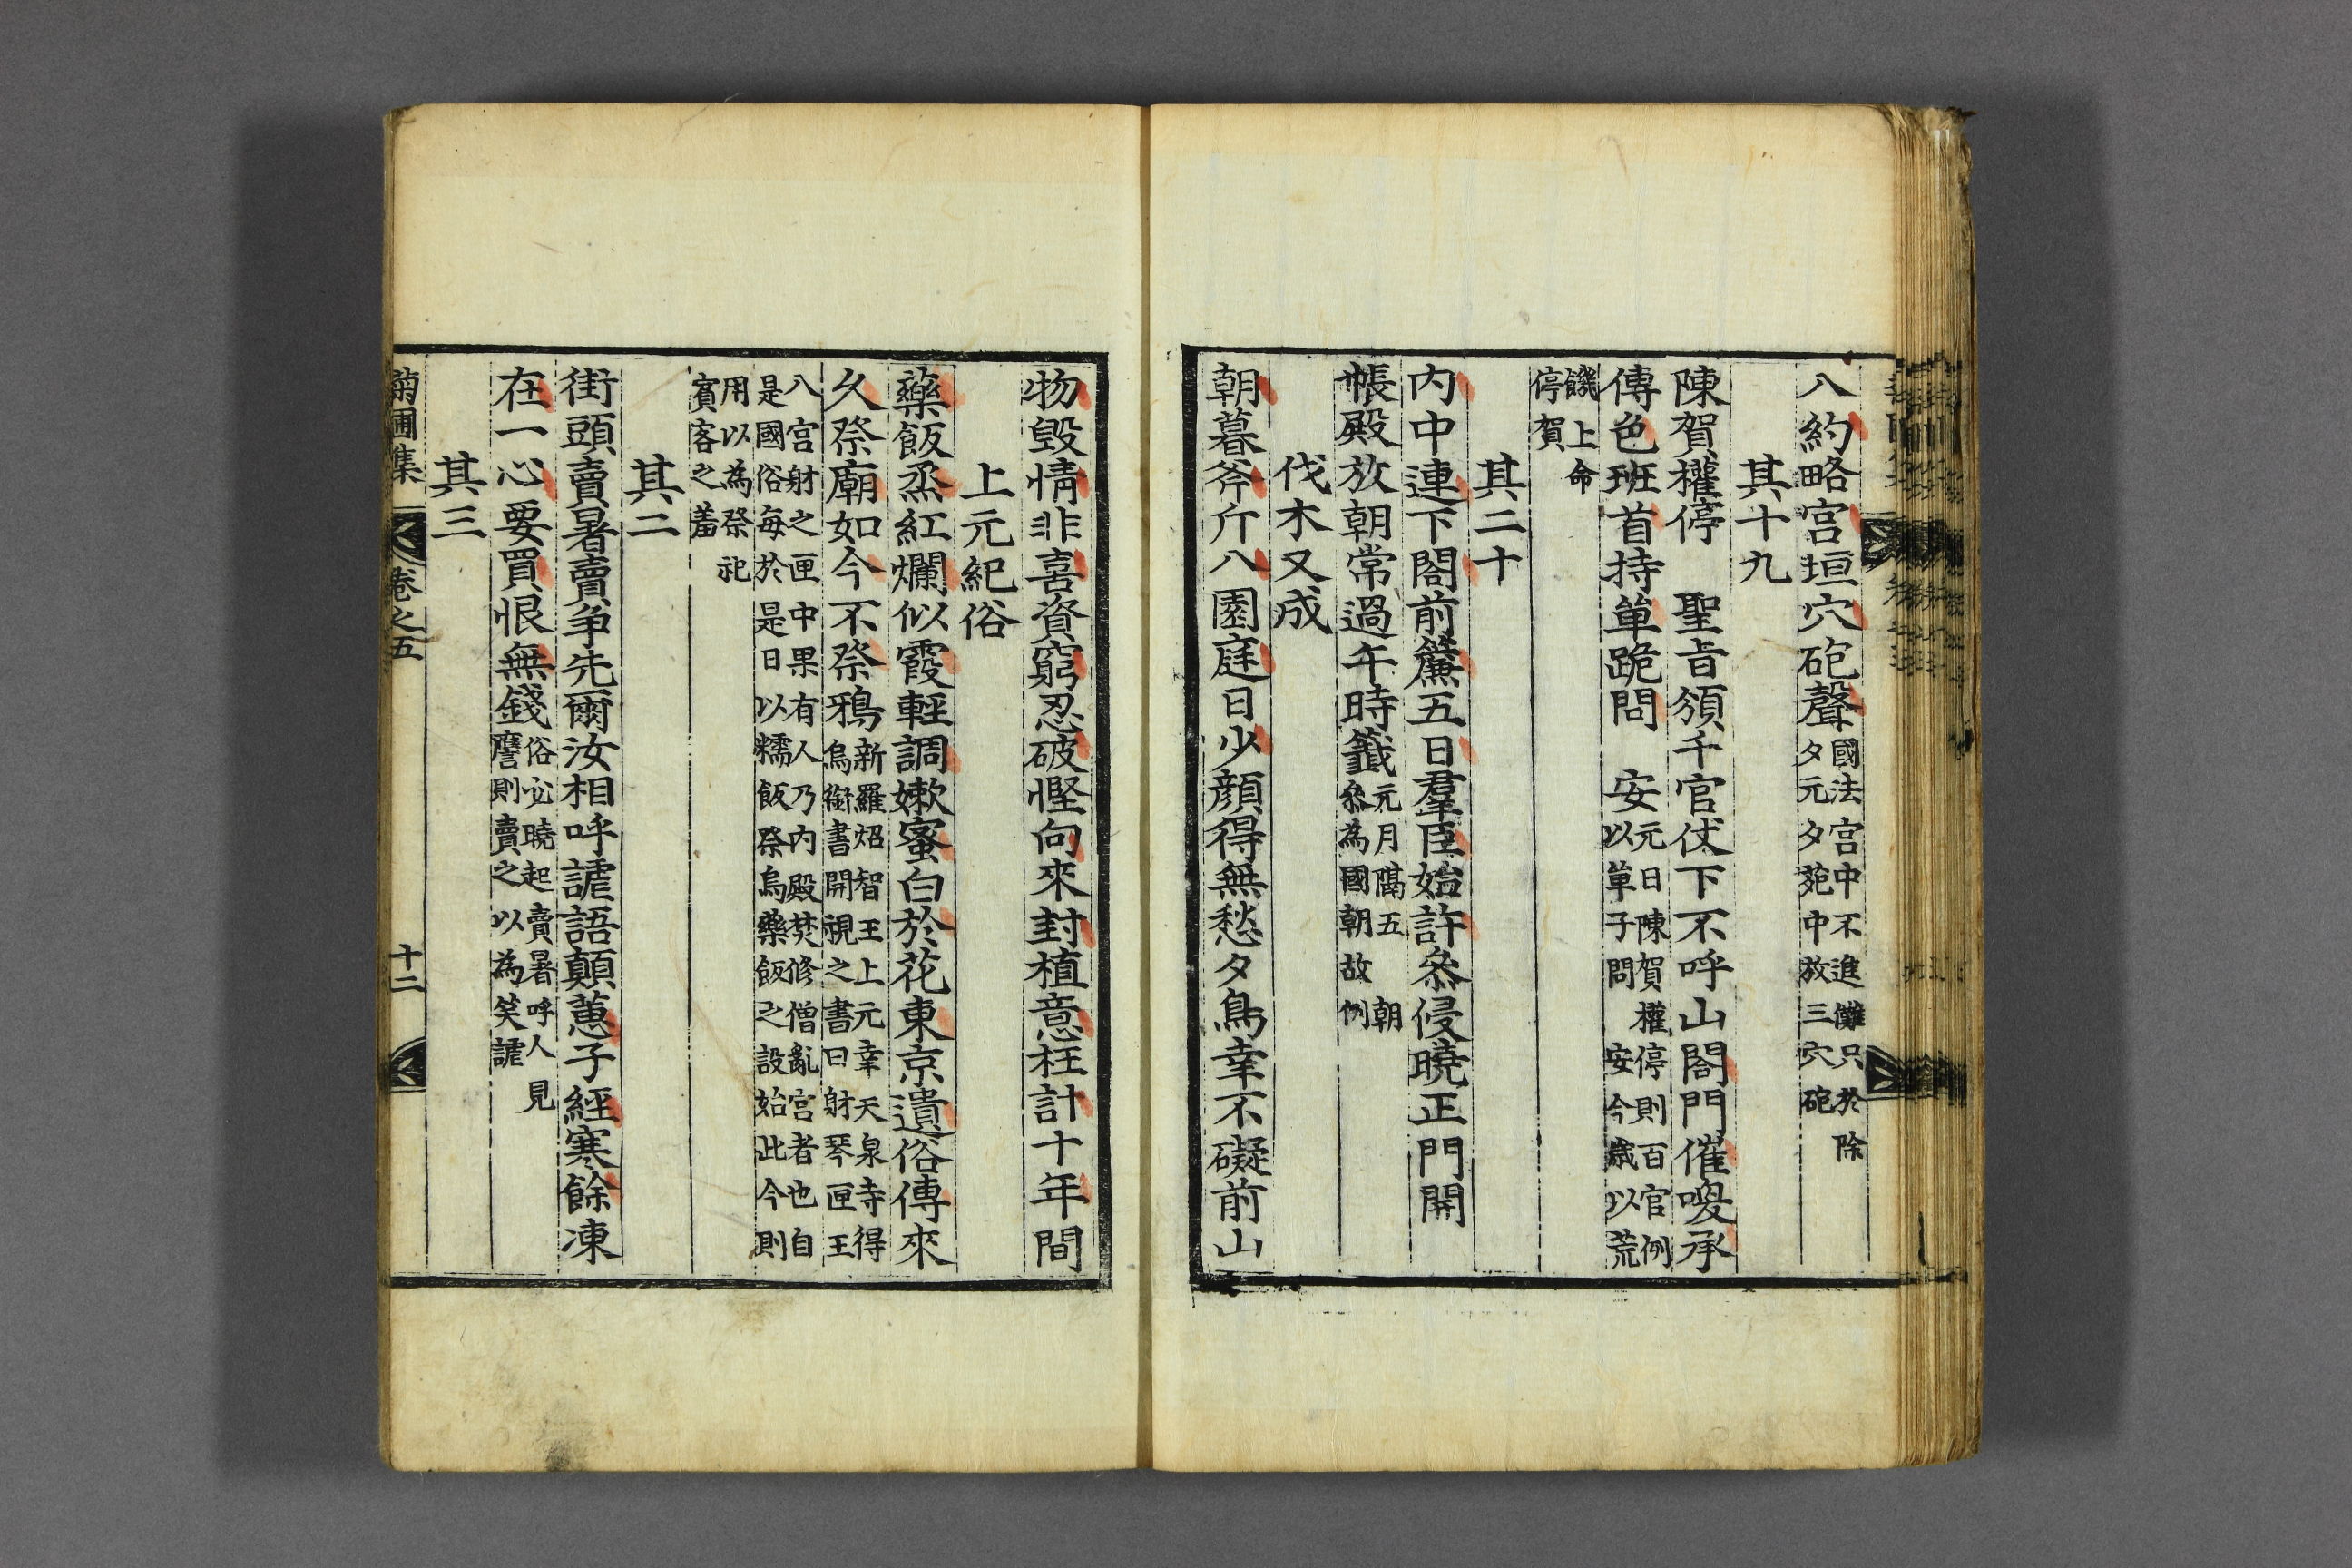 八約略宮垣穴砲聲國法宮中不進儺只於除
夕元夕苑中放三穴砲
其十九
陳賀權停　聖旨頒千官仗下不呼山閤門催喚承
傳色班首持單跪問　安元日陳賀權停則百官例
以單子問　安今歲以荒
饑上命
停賀
其二十
內中連下閤前簾五日羣臣始許叅侵曉正門開
帳殿放朝常過午時籤元月隔五　朝
叅為國朝故例
伐木又成
朝暮斧斤八園庭日少顔得無愁夕鳥幸不礙前山
物毀情非喜資窮忍破慳向來封植意枉計十年間
上元紀俗
藥飯烝紅爛似霞輕調嫰蜜白於花東京遺俗傳來
久祭廟如今不祭鴉新羅炤智王上元幸天泉寺得
烏銜書開視之書曰射琴匣王
八宮射之匣中果有人乃內殿焚修僧亂宮者也自
是國俗每於是日以糯飯祭烏藥飯之設始此今則
用以為祭祀
賓客之羞
其二
街頭賣暑賣爭先爾汝相呼謔語顛蕙子經寒餘凍
在一心要買恨無錢俗必曉起賣暑呼人　見
譍則賣之以為笑謔
其三
菊圃集　卷之五　十二